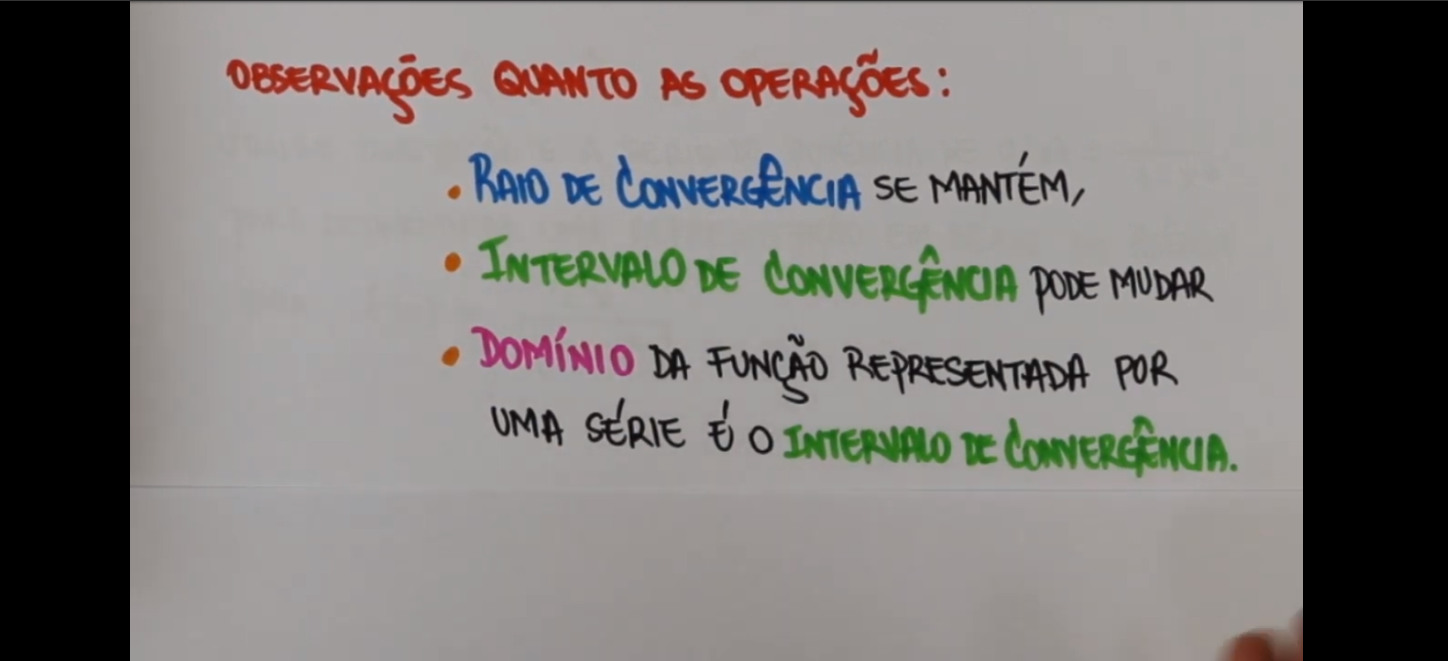 OBSERVAÇÕES QUANTO AS OPERAÇÕES:
• RAIO DE CONVERGÊNCIA SE MANTÉM,
• INTERVALO DE CONVERGÊNCIA PODE MUDAR
• DOMÍNIO DA FUNÇÃO REPRESENTADA POR
UMA SÉRIE É O INTERVALO DE CONVERGÊNCIA.